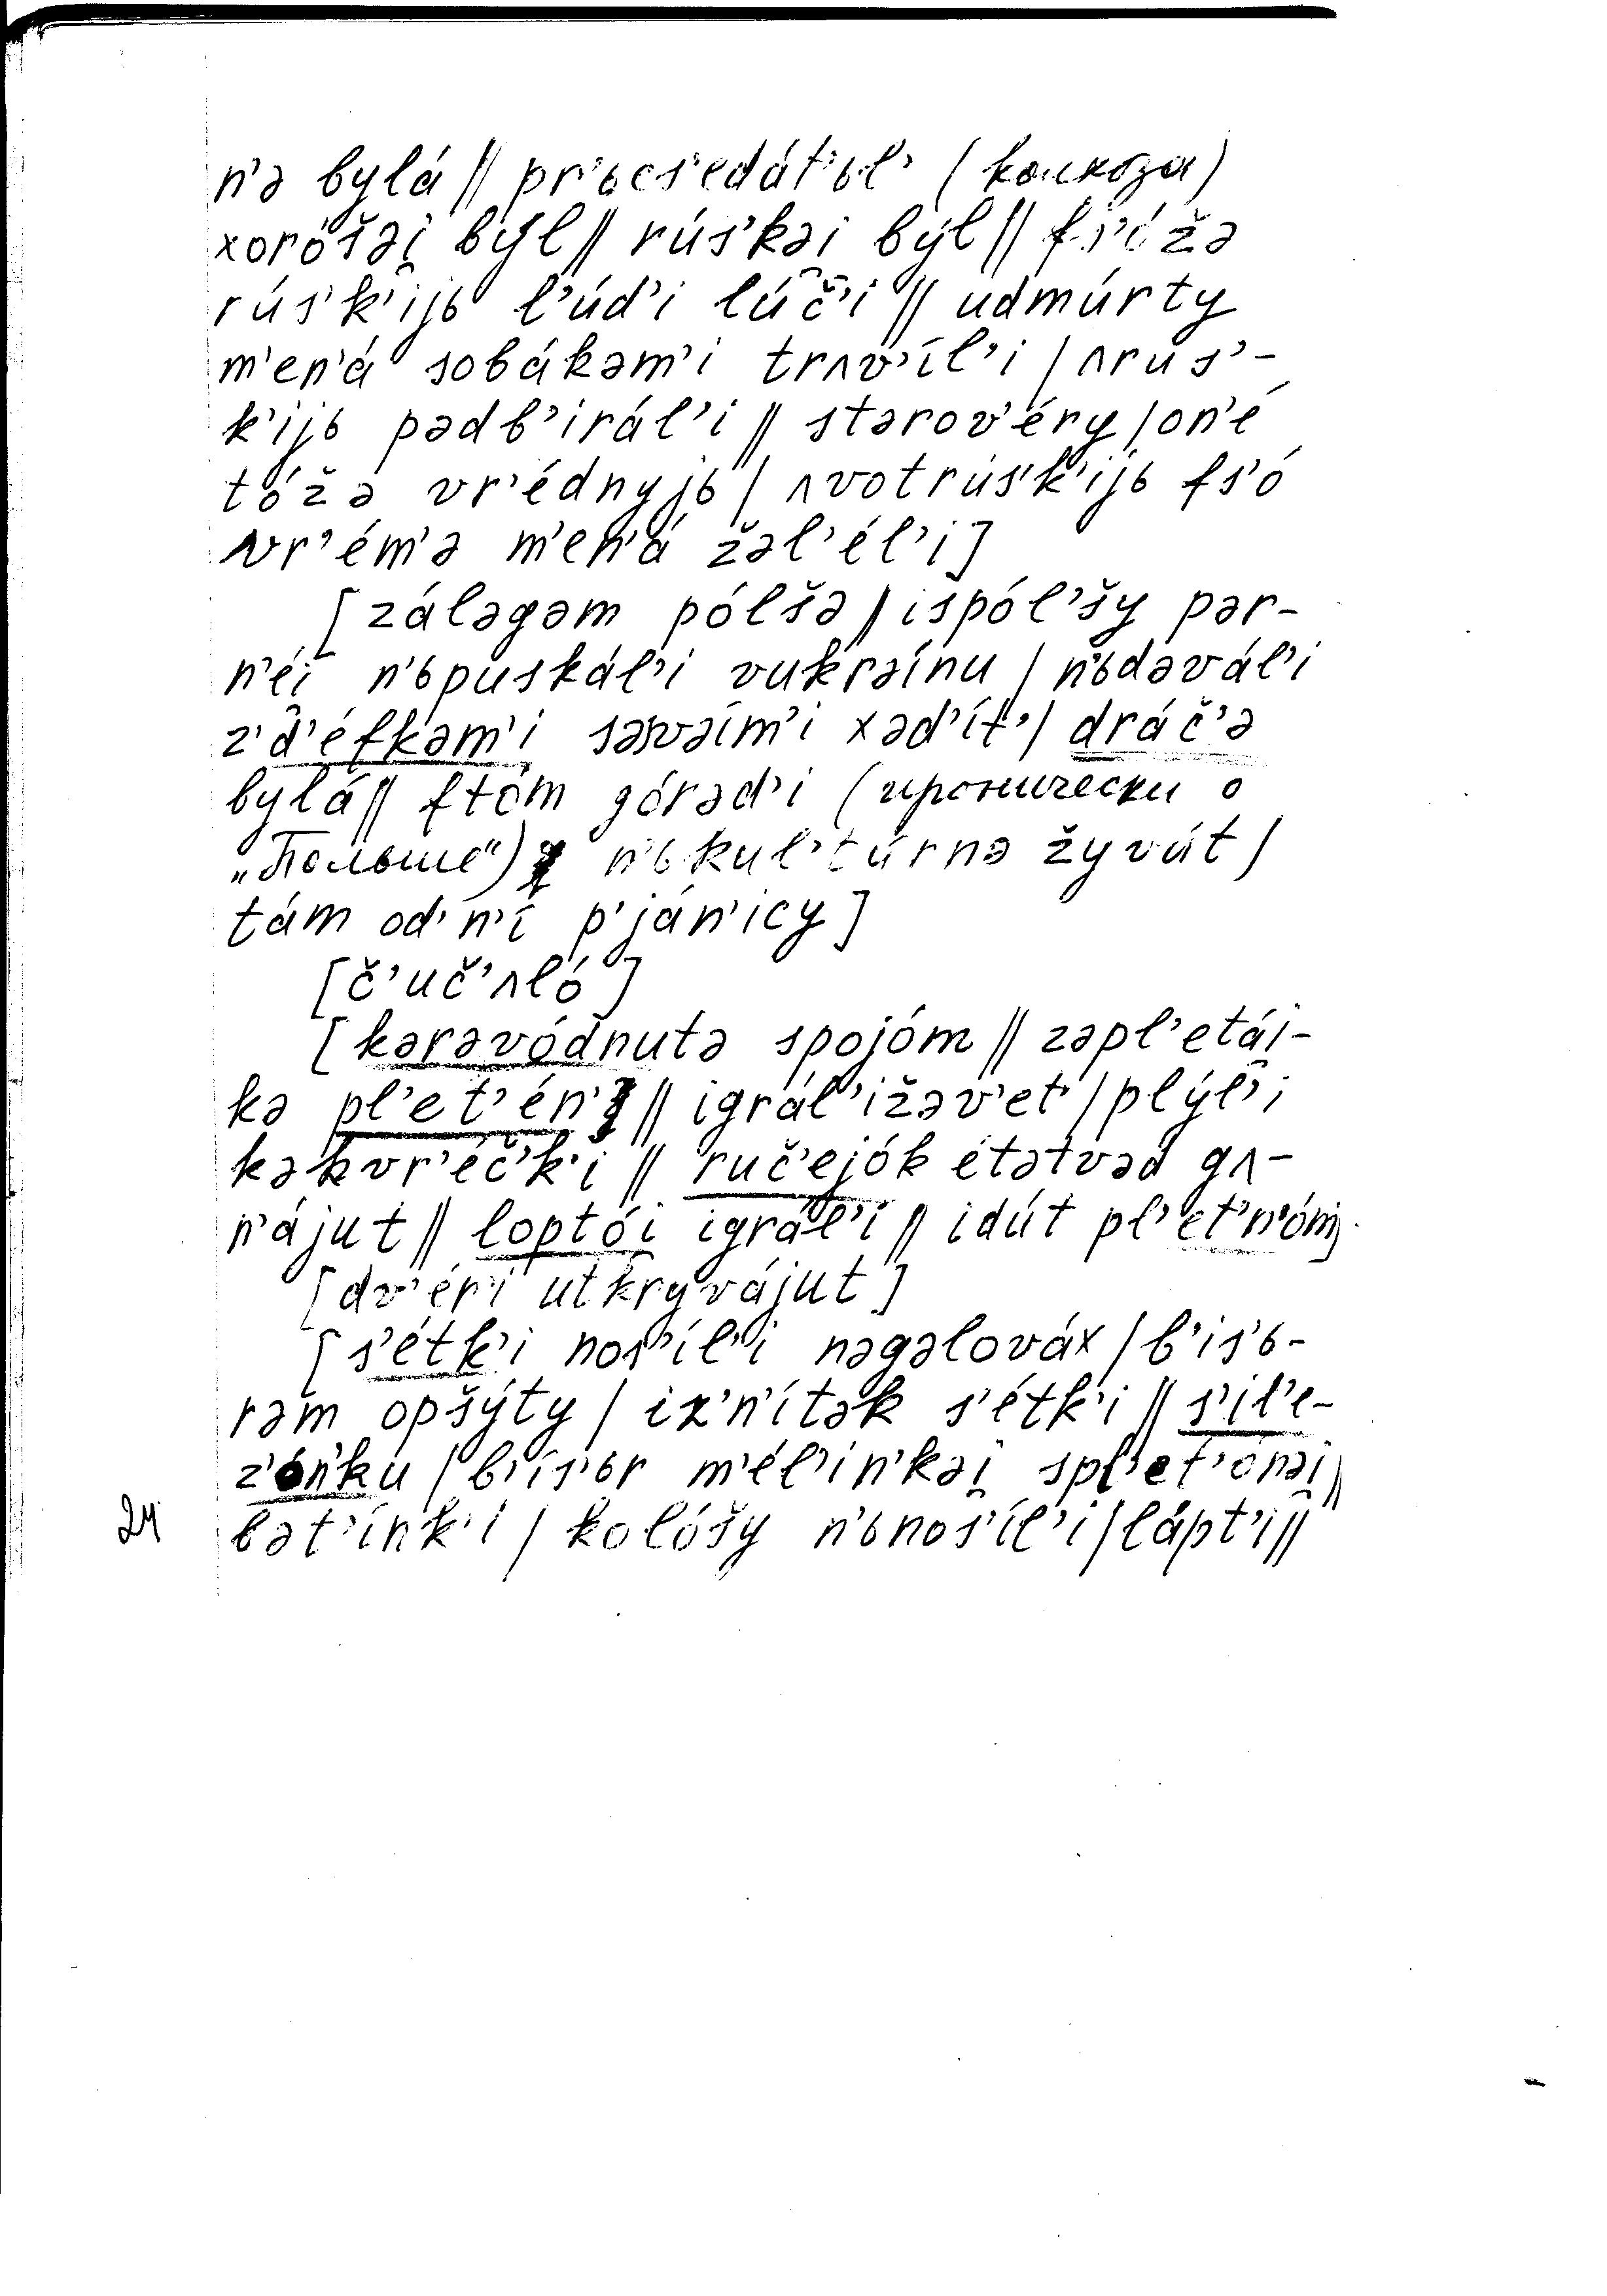 n'ə bylá || pr'ьcs'edát'ьl' (колхоза)
xoróšəi̯ býl || rús'kəi býl || fs'óžə
rús'k'ijь l'úd'i lúč'i || udmúrty
m'en'á sobákəm'i trʌv'íl'i / ʌrus'-
k'ijь pədb'irál'i || stərov'éry / on'é
tóžə vr'édnyjь / ʌvotrús'k'ijь fs'ó
vr'ém'ə m'en'á žəl'él'i]
[záləgəm pólšə || ispól'šy pər-
n'éi̯ n'ьpuskál'i vukrəínu / n'ьdəvál'i
z'd'éfkəm'i səsvəím'i xəd'ít' / dráč'ə
bylá || ftóm górəd'i (иронически о
„Польше") n'ьkul'túrnə žyvút /
tám od'n'í p'ján'icy]
[č'uč'ʌló]
[kərəvódnutə spojóm || zəpl'etái̯-
kə pl'et'én' || igrál'ižəv'et' / plýl'i
kəkvr'éč'k'i || ruč'ejók étətvəd gʌ-
n'ájut || loptói̯ igrál'i || idút pl'et'n'óm]
[dv'ér'i utkryvájut]
[s'étk'i nos'íl'i nəgəlováx / b'is'ь-
rəm opšýty / ix'n'ítək s'étk'i || s'il'e-
z'ónku / b'ís'ьr m'él'in'kəi̯ spl'et'ónəi̯ ||
bət'ínk'i / kolóšy n'ьnos'íl'i / lápt'i ||
24